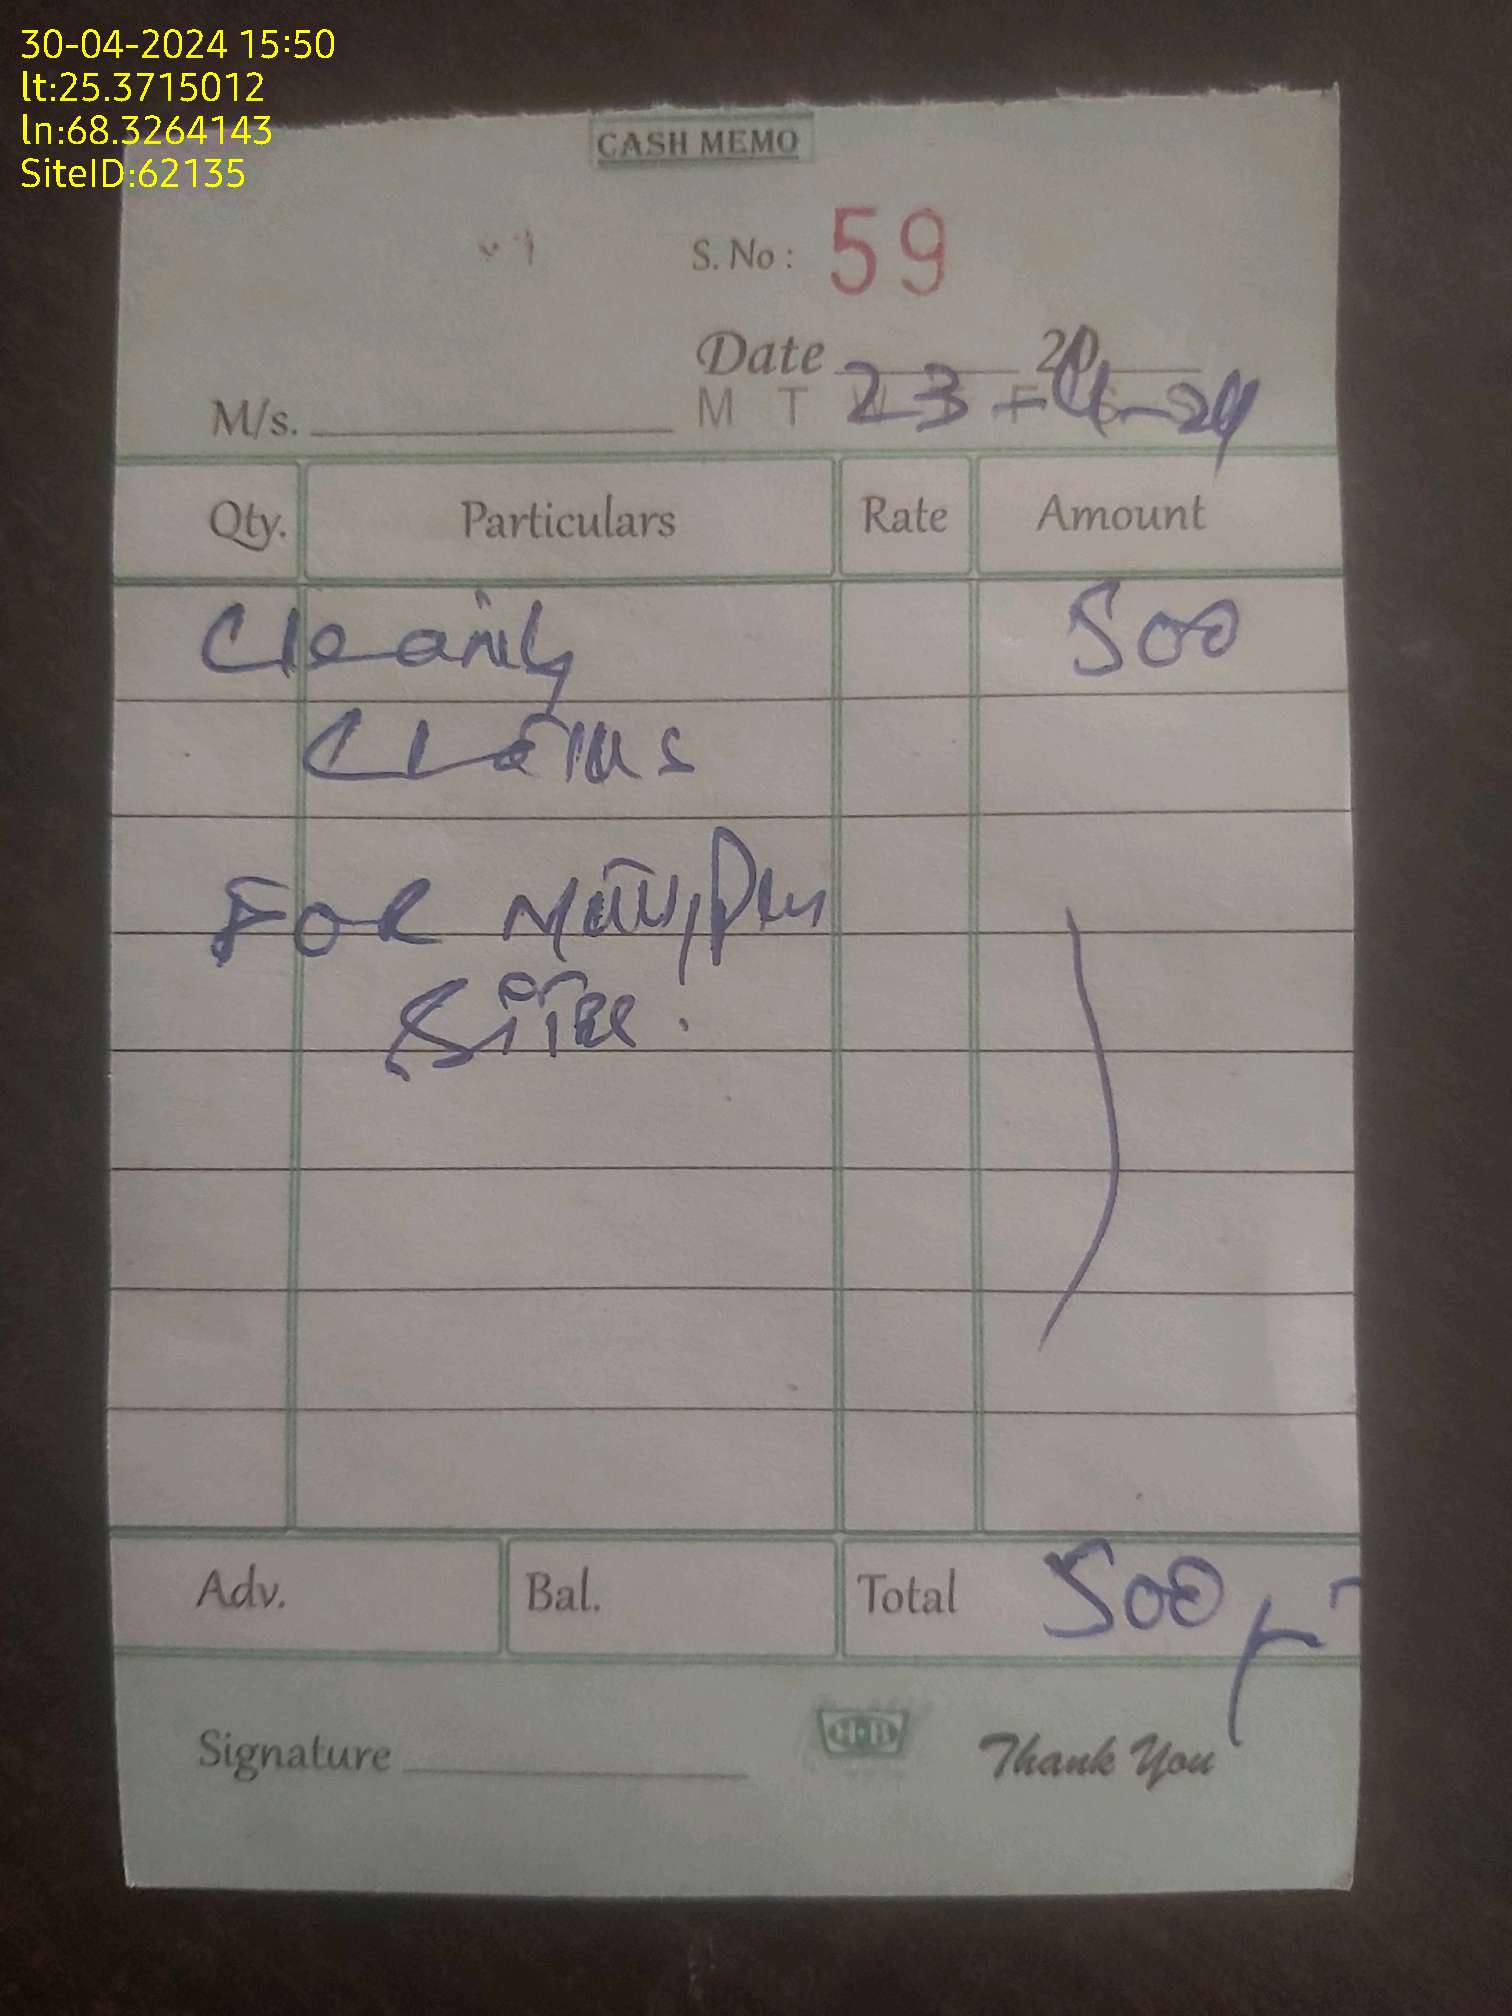 30-04-2024 15:50
lt:25.3715012
ln:68.3264143
SiteID:62135
CASH MEMO
S. No: 59
Date 20
M/s. M T 23-4-24
Qty. Particulars Rate Amount
500
FOR
Adv. Bal. Total 500
Signature H·B Thank You